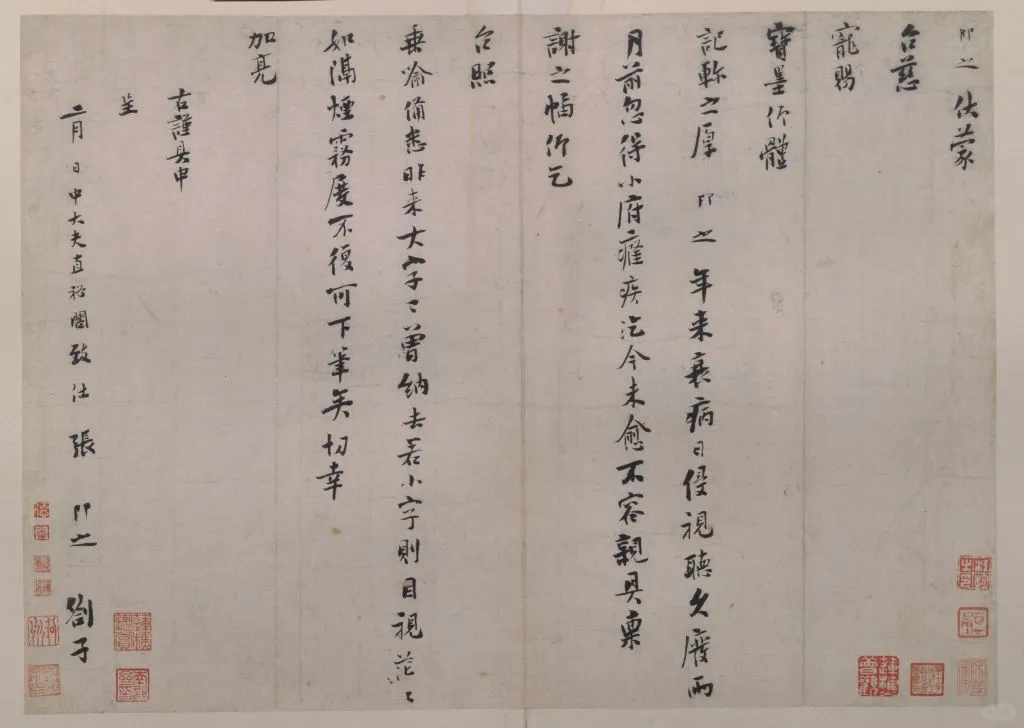 即之 伏蒙
台慈
寵賜
寶墨仰體
記軫之厚 即之 年来衰病日侵視聽久廢兩
月前忽得小府癃疾迄今未愈不容親具稟
謝之幅仰乞
台照
垂喻備悉昨来大字已曾納去若小字則目視茫々
如隔煙霧屢不復可下筆矣切幸
加亮
右謹具申
呈
二月 日中大夫直祕閣致仕 張 即之 劄子